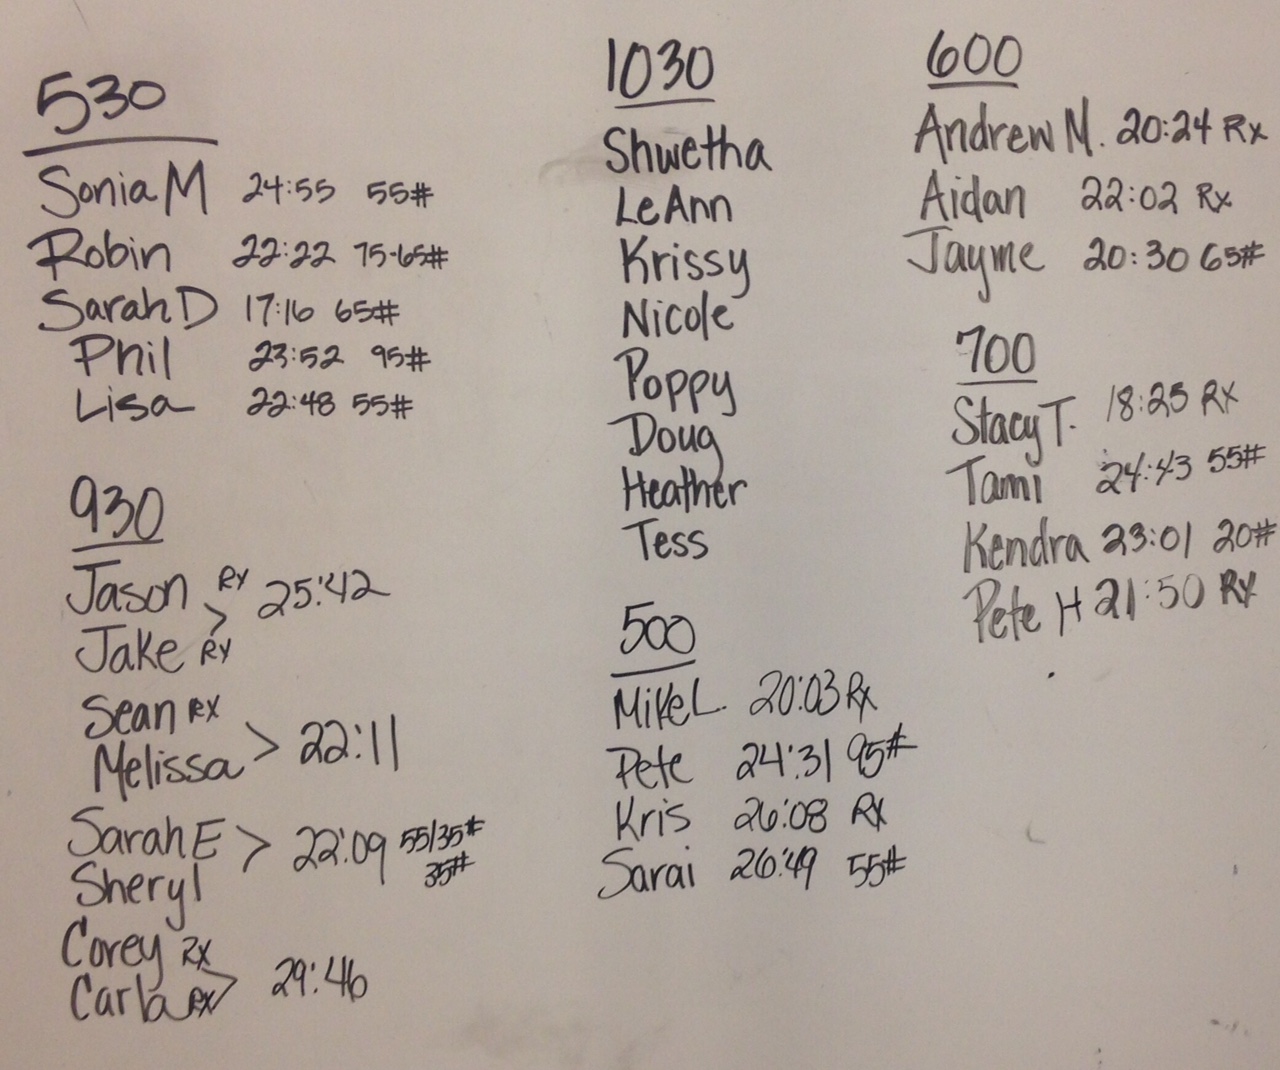 530
Sonia M 24:55 55#
Robin 22:22 75-65#
Sarah D 17:16 65#
Phil 23:52 95#
Lisa 22:48 55#
930
Jason RX > 25:42
Jake RX
Sean RX > 22:11
Melissa
Sarah E > 22:09 55/35#
Sheryl 35#
Corey RX > 29:46
Carla RX
1030
Shwetha
LeAnn
Krissy
Nicole
Poppy
Doug
Heather
Tess
500
Mike L. 20:03 Rx
Pete 24:31 95#
Kris 26:08 RX
Sarai 26:49 55#
600
Andrew M. 20:24 Rx
Aidan 22:02 Rx
Jayme 20:30 65#
700
Stacy T. 18:25 RX
Tami 24:43 55#
Kendra 23:01 20#
Pete H 21:50 RX